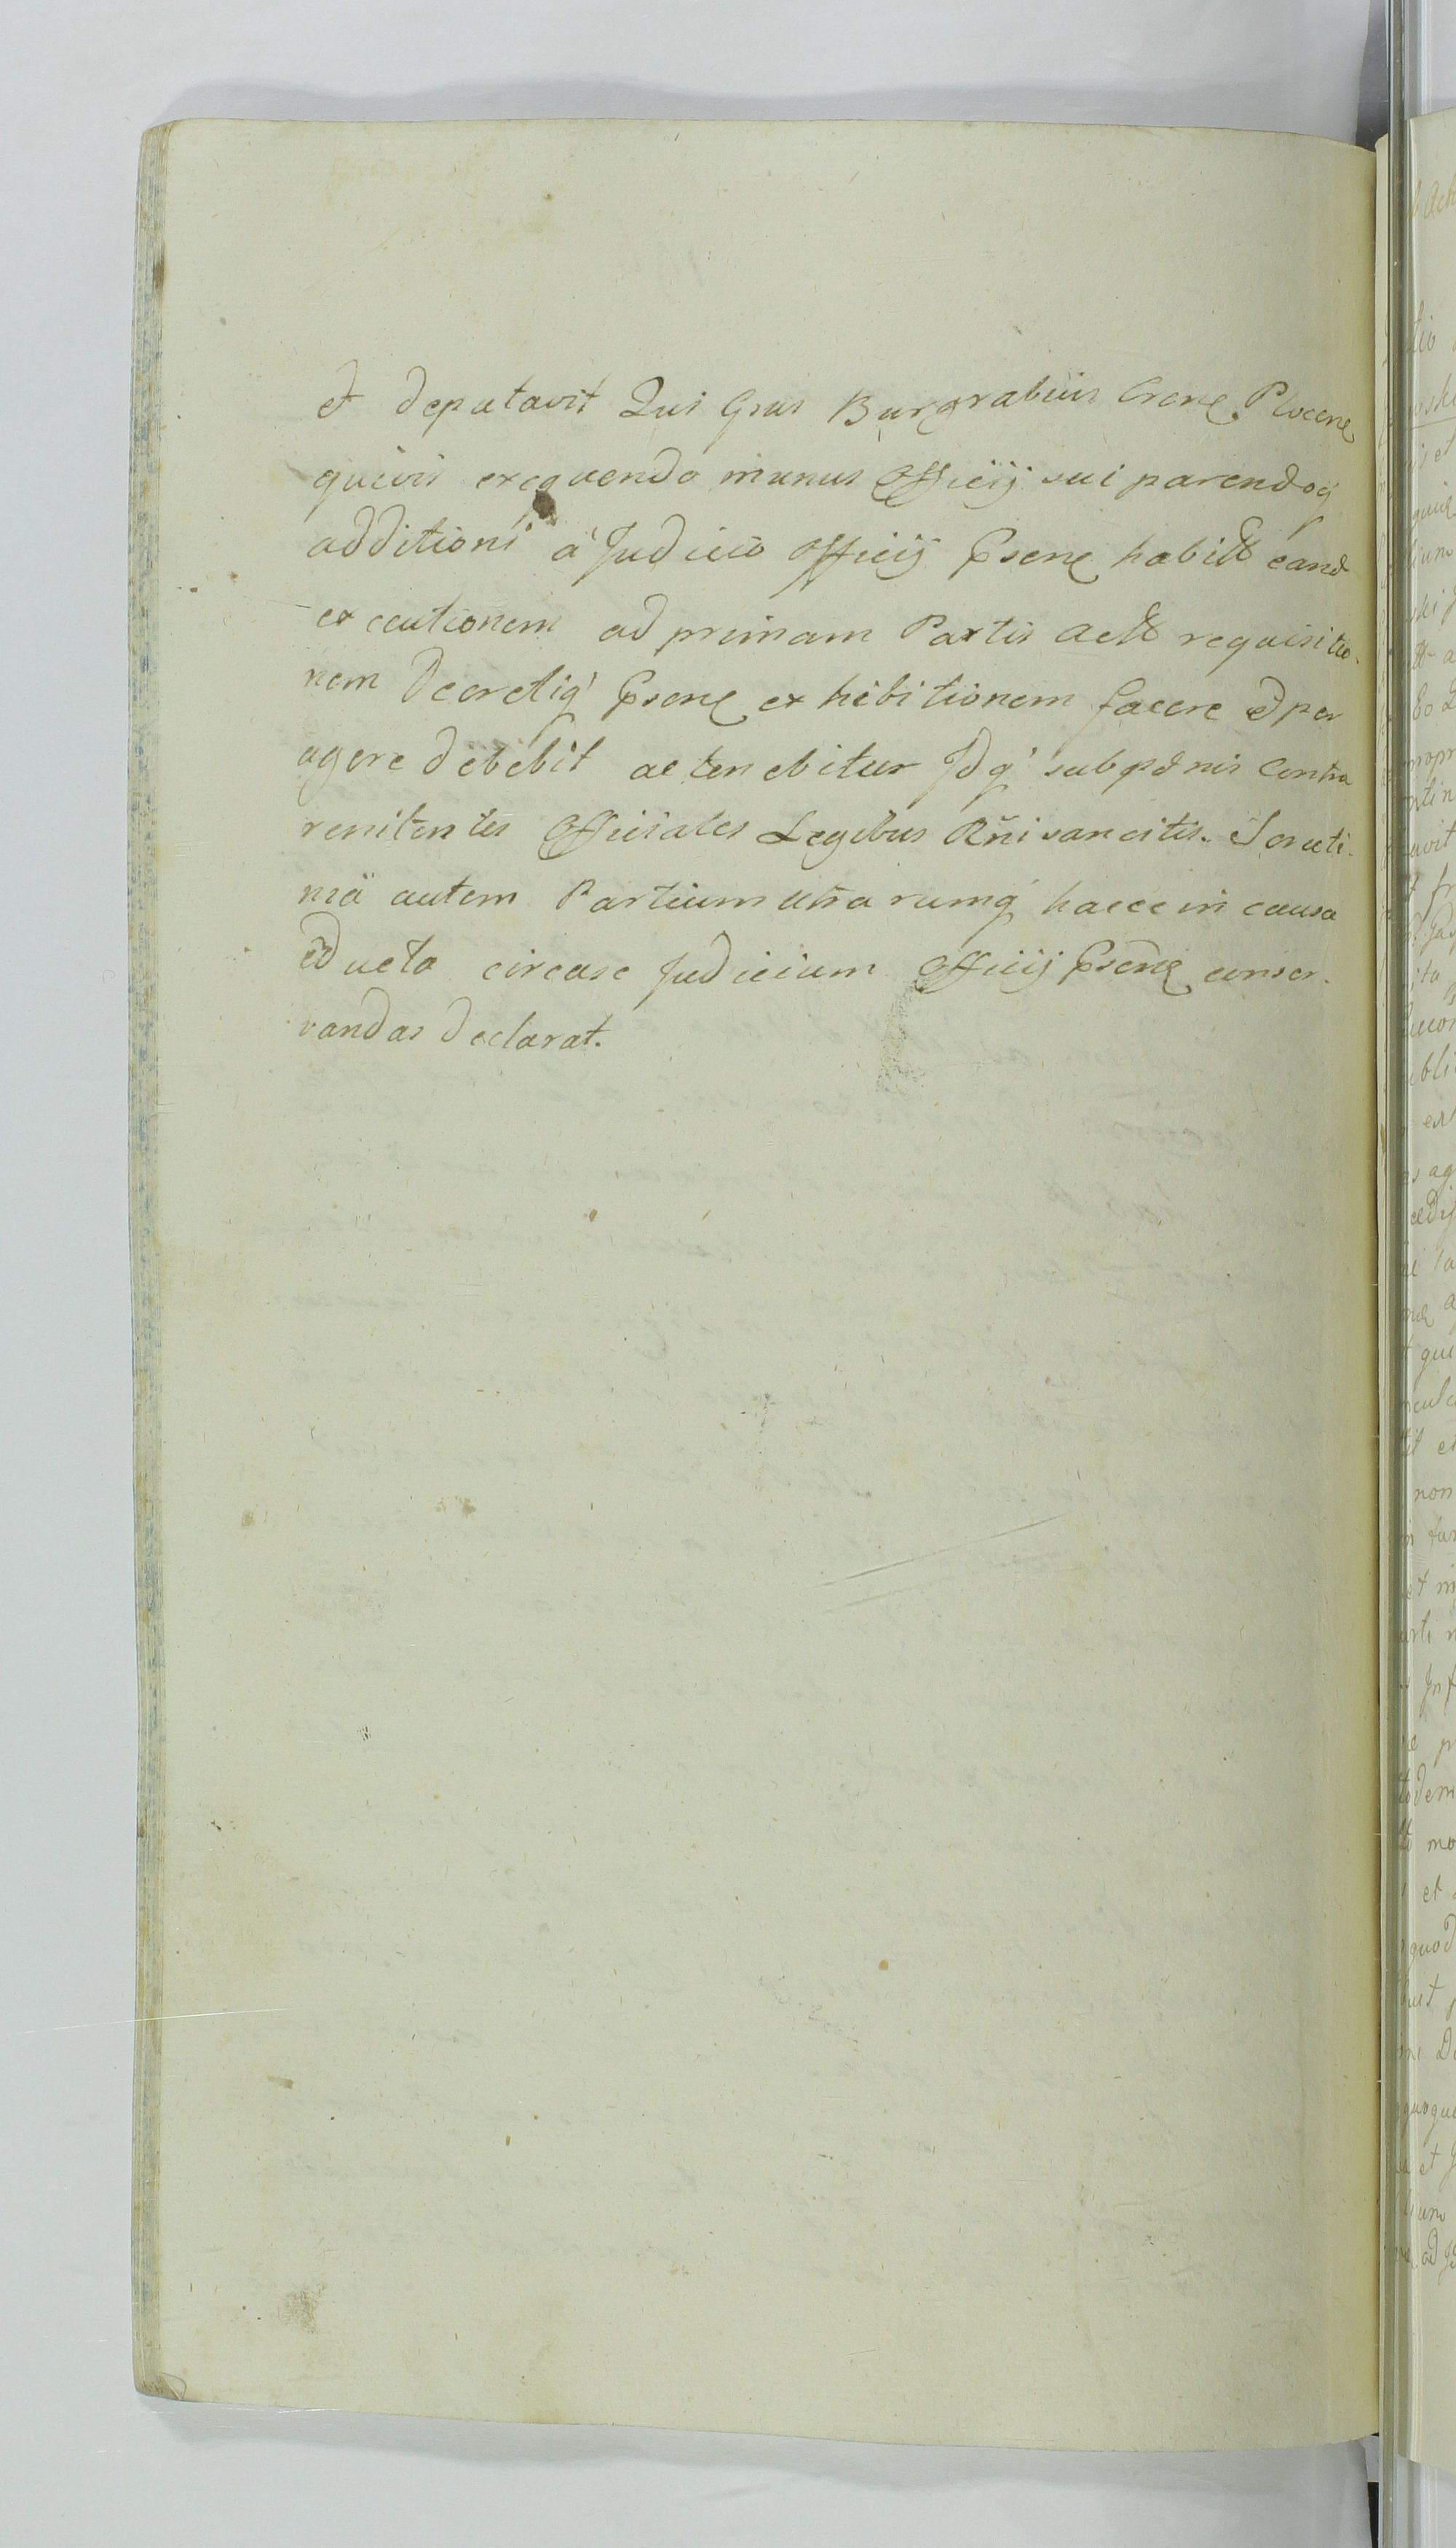 et deputavit Qui Gsus Burgrabius Crens Plocens
quivis exequendo munus Officij sui parendoq
additioni a Judicio Officij Psens habitæ eand
executionem ad primam Partis Actæ requisitio-
nem Decretiq Psens exhibitionem facere et per
agere debebit ac tenebitur Idq sub pænis contra
renitentes Officiales Legibus Rñi sancitis. Scruti-
nia autem Partium utrarumq haece in causa
educta circa se Judicium Officij Psens conser-
vandas declarat.